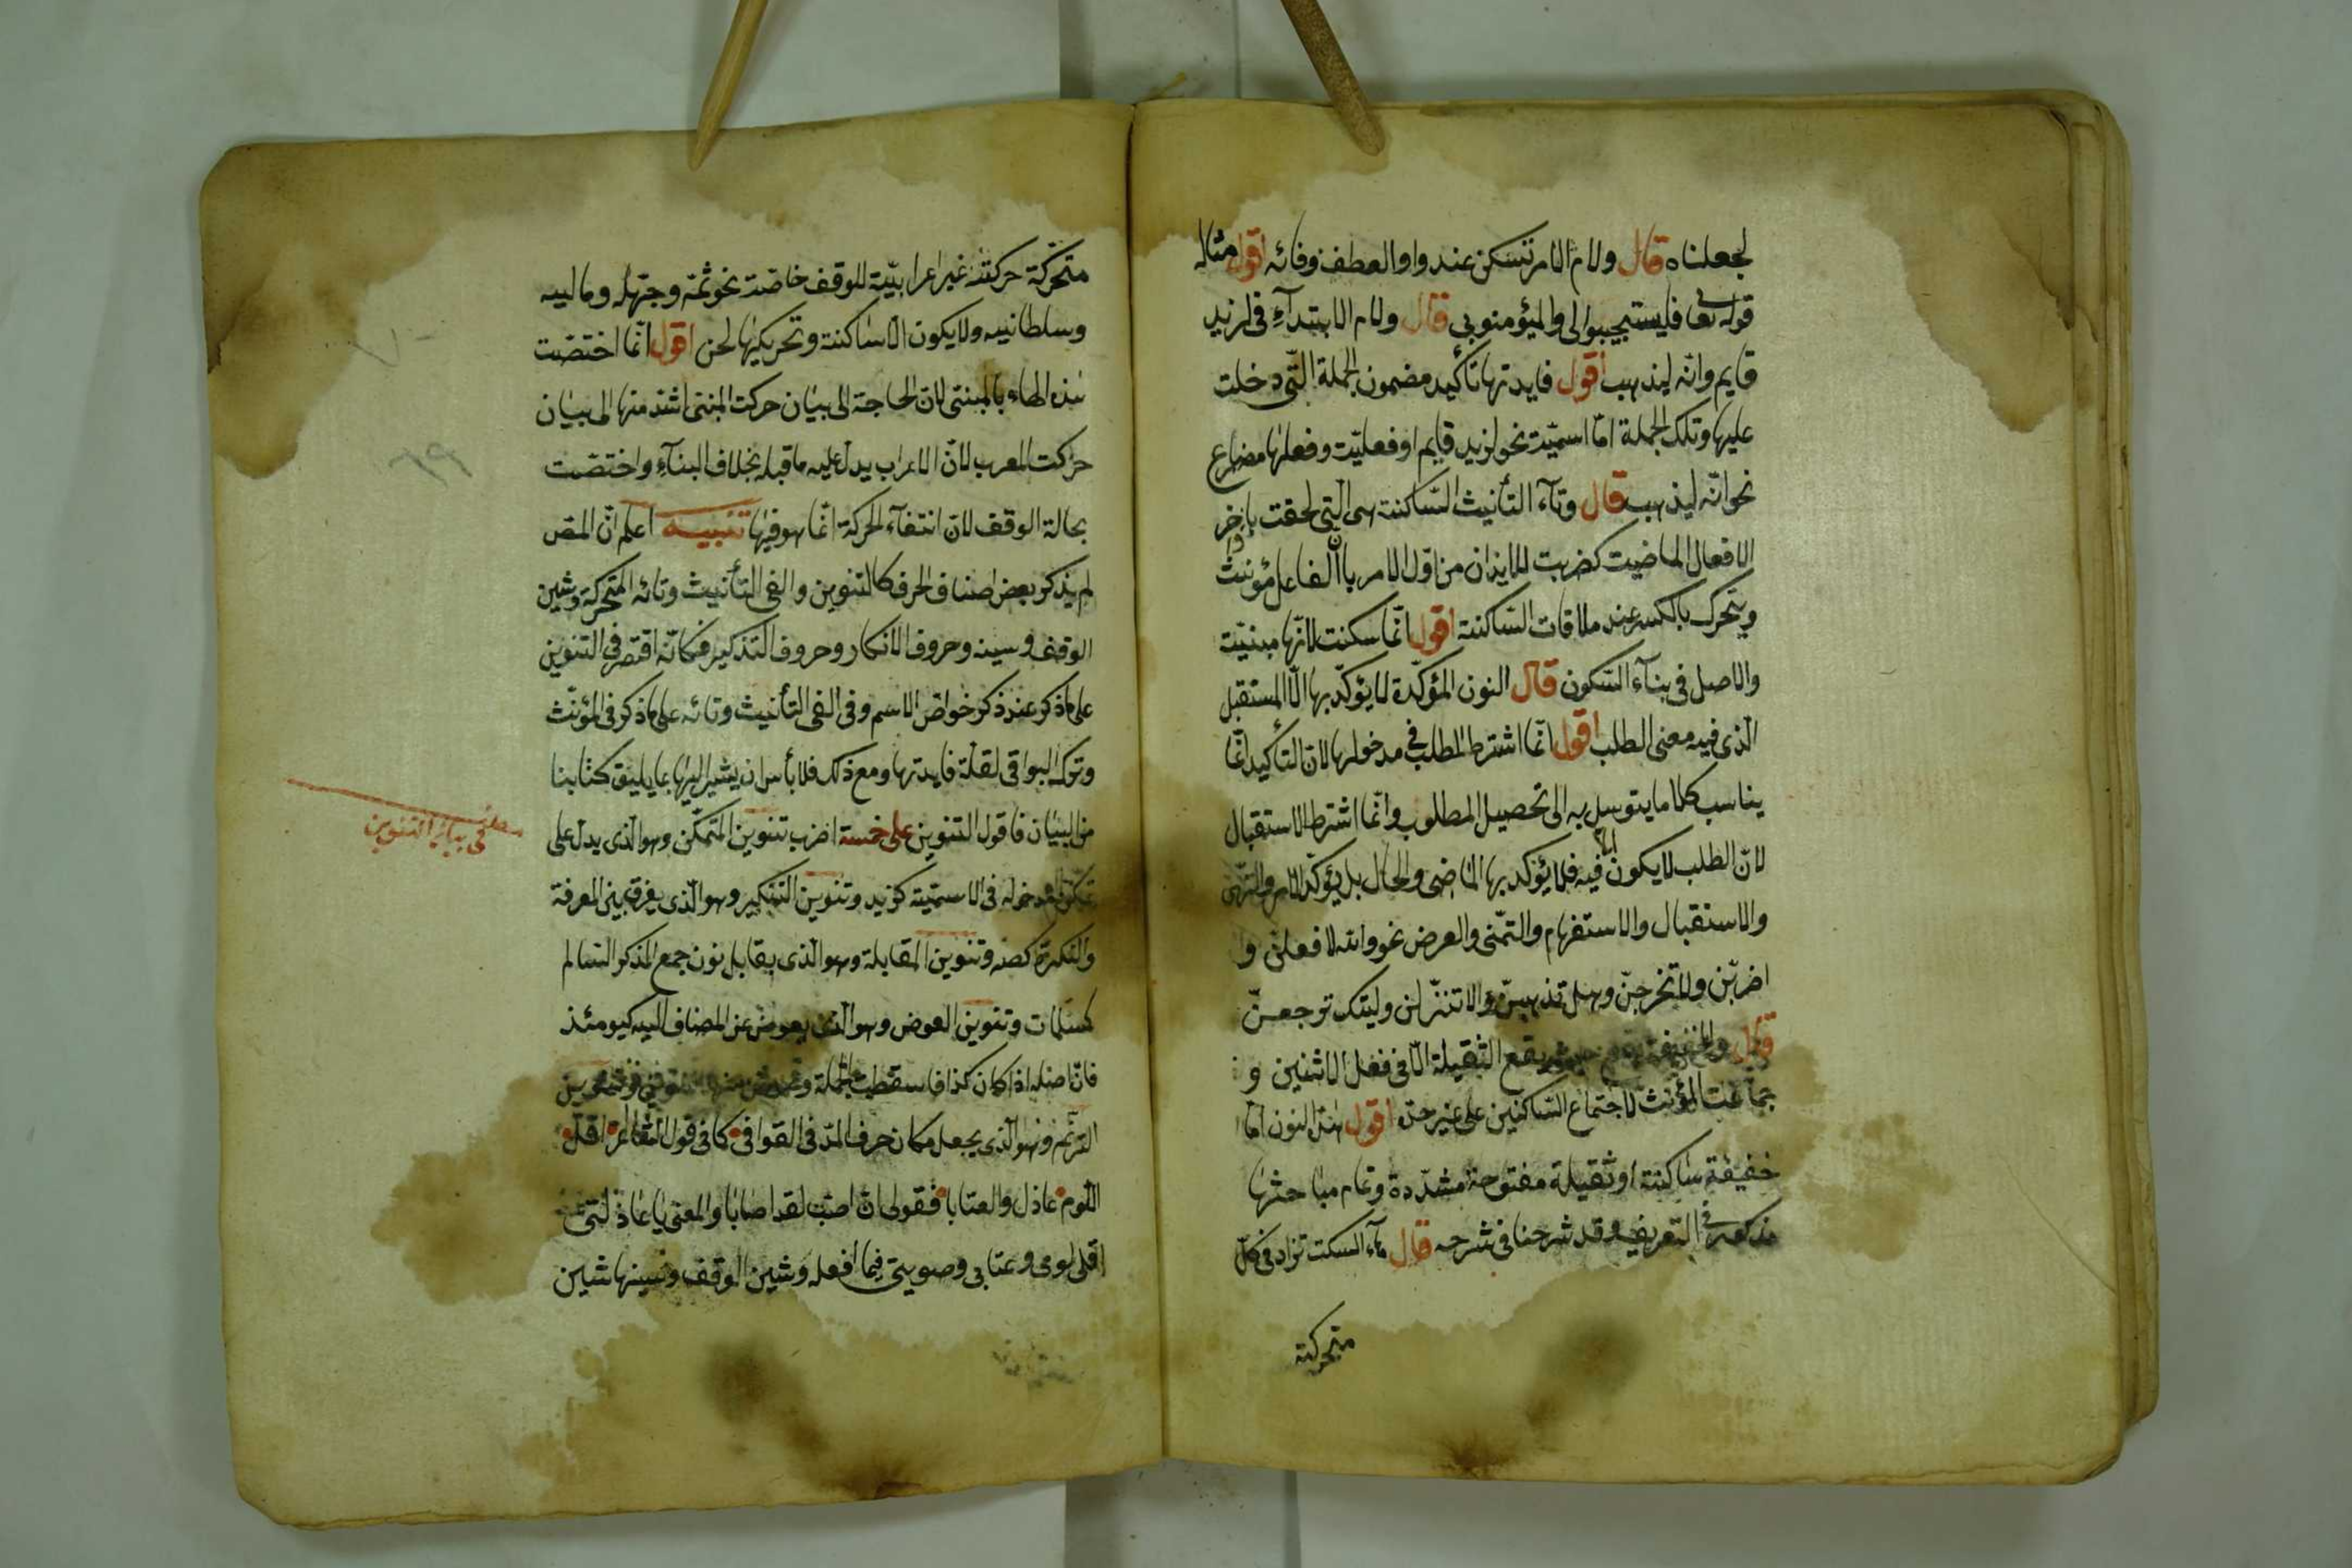 لجعلناه قال ولام الامر تسكن عند واو العطف وفائه اقول مثاله
قوله تعا فليستجيبوا لى وليؤمنوبى قال ولام الابتدآء فى لزيد
قايم وانّه ليذهب اقول فايدتها تأكيد مضمون الجملة التّى دخلت
عليها وتلك الجملة امّا اسميّة نحو لزيد قايم او فعليّة وفعلها مضارع
نحو انّه ليذهب قال وتآء التأنيث السّاكنة هى الّتى لحقت باخر
الافعال الماضيت كضربت للايذان من اوّل الامر بانّ الفاعل مؤنث
ويتحرك بالكسر عند ملاقات السّاكنة اقول انّما سكنت لانّها مبنيّة
والاصل فى بنآء السّكون قال النون المؤكّدة لا يؤكّد بها الّا المستقبل
الّذى فيه معنى الطلب اقول انّما اشترط الطلب فى مدخولها لانّ التأكيد انّما
يناسب كلاما يتوسل به الى تحصيل المطلوب وانّما اشترط الاستقبال
لانّ الطلب لا يكون الّا فيه فلا يؤكد بها الماضى والحال بل يؤكّد الامر والنّهى
والاستقبال والاستفهام والتمّنى والعرض نحو والله لافعلنّ و
اضربّن ولا تخرجنّ وهل تذهبنّ والا تنزّلن وليتك ترجعنّ
قال والخفيفة تقع حيث يقع الثقيلة الّا فى فعل الاثنين و
جماعت المؤنث لاجتماع السّاكنين على غير حدّه اقول هذا النون امّا
خفيفة ساكنة او ثقيلة مفتوحة مشدّدة وتمام مباحثها
مذكور فى التّعريف وقد شرحنا فى شرحه قال هاء السكت تزاد فى كلّ
متحركة
متحرّكة حركته غير اعرابيّة للوقف خاصّة نحو ثمّه وحيّهله وماليه
وسلطانيه ولا يكون الّا ساكنة وتحريكها لحن اقول انّما اختصّت
هذه الهاء بالمبنىّ لانّ الحاجة الى بيان حركت المبنىّ اشدّ منها الى بيان
حركت المعرب لانّ الاعراب يدلّ عليه ما قبله بخلاف البنآء واختصّت
بحالة الوقف لانّ انتفآء الحركة انّما هو فيها تنبيه اعلم انّ المص
لم يذكر بعض اصناف الحرف كالتنوين والفى التأنيث وتائه المتحركة وشين
الوقف وسينه وحروف الانكار وحروف التذكير فكانّه اقتصر فى التنوين
على ما ذكر عند ذكر خواصّ الاسم وفى الفى التأنيث وتائه على ما ذكر فى المؤنّث
وترك البواقى لقلّة فايدتها ومع ذلك فلا بأس ان يشير اليها بما يليق كتابنا
من البيان فاقول التنوين على خمسة اضرب تنوين المتمكّن وهو الّذى يدلّ على
تمكّن مدخوله فى الاسميّة كزيد وتنوين التنكير وهو الّذى يفرق بين المعرفة
والنكرة كصه وتنوين المقابلة وهو الّذى يقابل نون جمع المذكر السّالم
كمسلمات وتنوين العوض وهو الّذى يعوض عن المضاف اليه كيومئذ
فانّ اصله اذ كان كذا فاسقطت الجملة وعوض عنها التنوين وتنوين
الترنّم وهو الّذى يجعل مكان حرف المدّ فى القوافى كما فى قول الشّاعر اقلّ
اللّوم عاذل والعتابا فقولى ان اصبت لقد اصابا والمعنى يا عاذلتى
اقلى لومى وعتابى وصوبينى فيما افعله وشين الوقف وسينها شين
مطلب فى بيان التنوين
٦٩